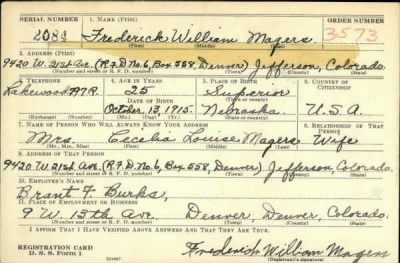 SERIAL NUMBER 1. NAME (Print) ORDER NUMBER
2084 Frederick William Magers 3573
(First) (Middle) (Last)
2. ADDRESS (Print)
9420 W. 21st Ave (R.F.D. No. 6, Box 558, Denver) Jefferson, Colorado.
(Number and street or R. F. D. number) (Town) (County) (State)
3. TELEPHONE 4. AGE IN YEARS 5. PLACE OF BIRTH 6. COUNTRY OF CITIZENSHIP
Lakewood 25 Superior
DATE OF BIRTH (Town or county)
October 13, 1915. Nebraska U.S.A.
(Exchange) (Number) (Mo.) (Day) (Yr.) (State or country)
7. NAME OF PERSON WHO WILL ALWAYS KNOW YOUR ADDRESS 8. RELATIONSHIP OF THAT PERSON
Mrs. Cecelia Louise Magers Wife
(Mr., Mrs., Miss) (First) (Middle) (Last)
9. ADDRESS OF THAT PERSON
9420 W. 21st Ave (R.F.D. No. 6, Box 558, Denver) Jefferson, Colorado.
(Number and street or R. F. D. number) (Town) (County) (State)
10. EMPLOYER'S NAME
Brant F. Burks,
11. PLACE OF EMPLOYMENT OR BUSINESS
9 W. 13th Ave. Denver, Denver, Colorado.
(Number and street or R. F. D. number) (Town) (County) (State)
I AFFIRM THAT I HAVE VERIFIED ABOVE ANSWERS AND THAT THEY ARE TRUE.
REGISTRATION CARD
D. S. S. Form 1 (over) Frederick William Magers
(Registrant's signature)